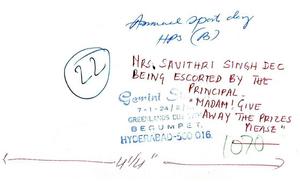 Annual Sports day
HPS (B)
22
MRS. SAVITHRI SINGH DEC
BEING ESCORTED BY THE
PRINCIPAL.
"MADAM! GIVE
AWAY THE PRIZES
PLEASE"
Gemini S
7-1-24/
GREENLANDS
BEGUMPET,
HYDERABAD-500 016.
1070
4¼"